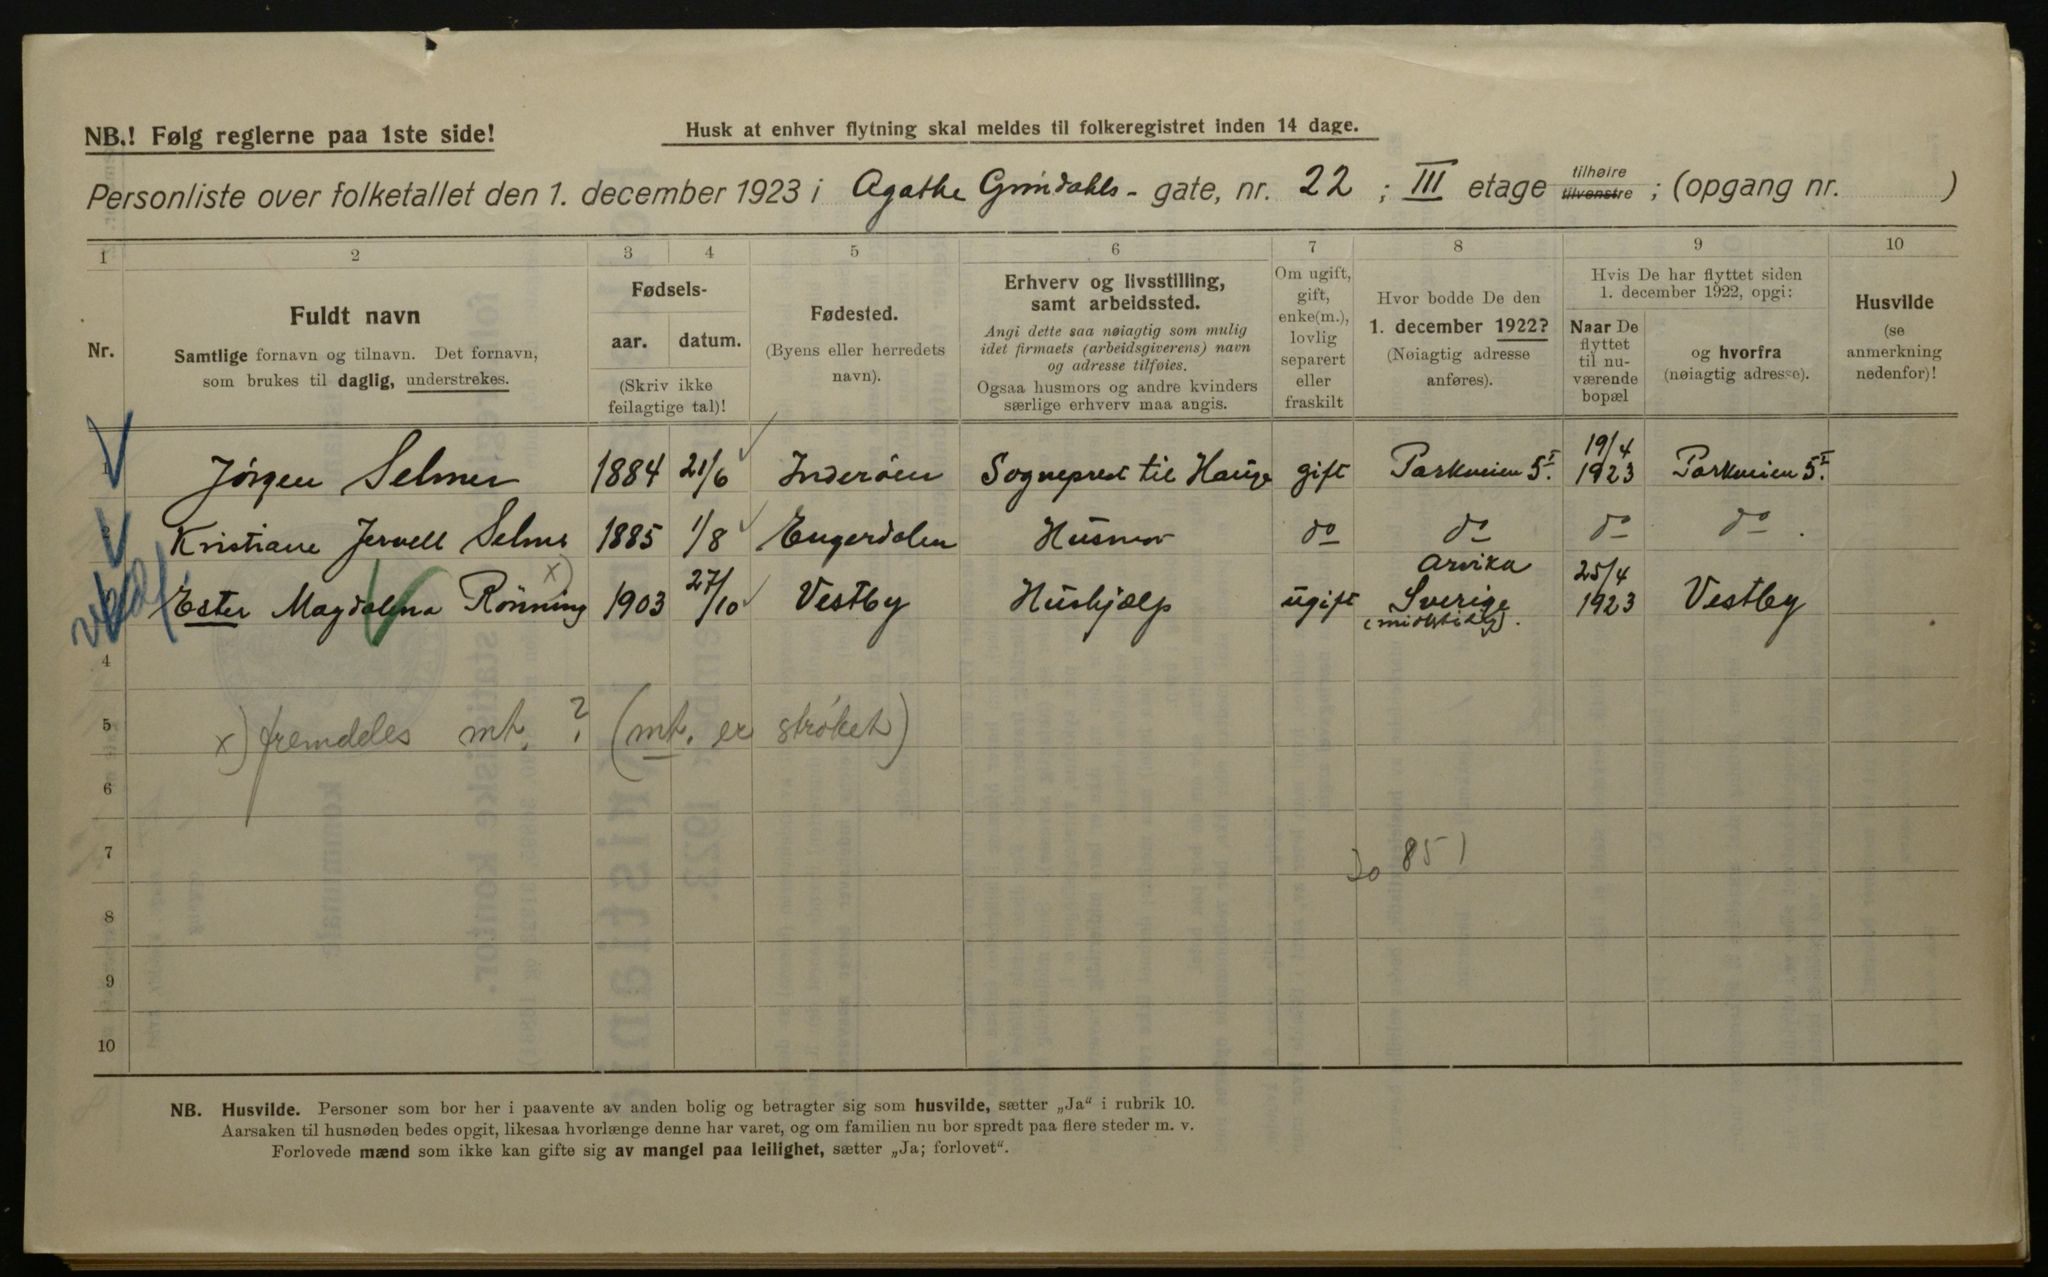 NB.! Følg reglerne paa 1ste side!
Husk at enhver flytning skal meldes til folkeregistret inden 14 dage.
Personliste over folketallet den 1. december 1923 i Agathe Grøndahls - gate, nr. 22 ; III etage tilhøire tilvenstre ; (opgang nr. )
1 2 3 4 5 6 7 8 9 10
Nr.
Fuldt navn
Samtlige fornavn og tilnavn. Det fornavn,
som brukes til daglig, understrekes.
Fødsels-
aar. datum.
(Skriv ikke
feilagtige tal)!
Fødested.
(Byens eller herredets
navn).
Erhverv og livsstilling,
samt arbeidssted.
Angi dette saa nøiagtig som mulig
idet firmaets (arbeidsgiverens) navn
og adresse tilføies.
Ogsaa husmors og andre kvinders
særlige erhverv maa angis.
Om ugift,
gift,
enke(m.),
lovlig
separert
eller
fraskilt
Hvor bodde De den
1. december 1922?
(Nøiagtig adresse
anføres).
Hvis De har flyttet siden
1. december 1922, opgi:
Naar De
flyttet
til nu-
værende
bopæl
og hvorfra
(nøiagtig adresse).
Husvilde
(se
anmerkning
nedenfor)!
1 Jørgen Selmer 1884 21/6 Inderøen Sogneprest til Hauge gift Parkveien 5 I. 19/4 1923 Parkveien 5 I.
Kristiane Jervell Selmer 1885 1/8 Engerdalen Husmor do do do do.
Ester Magdalena Rönning x) 1903 27/10 Vestby Hushjælp ugift Arvika Sverige (midlertidig). 25/4 1923 Vestby
4
5 x) fremdeles mt. ? (mt. er strøket)
6
7 Do 851
8
9
10
NB. Husvilde. Personer som bor her i paavente av anden bolig og betragter sig som husvilde, sætter „Ja“ i rubrik 10.
Aarsaken til husnøden bedes opgit, likesaa hvorlænge denne har varet, og om familien nu bor spredt paa flere steder m. v.
Forlovede mænd som ikke kan gifte sig av mangel paa leilighet, sætter „Ja; forlovet“.